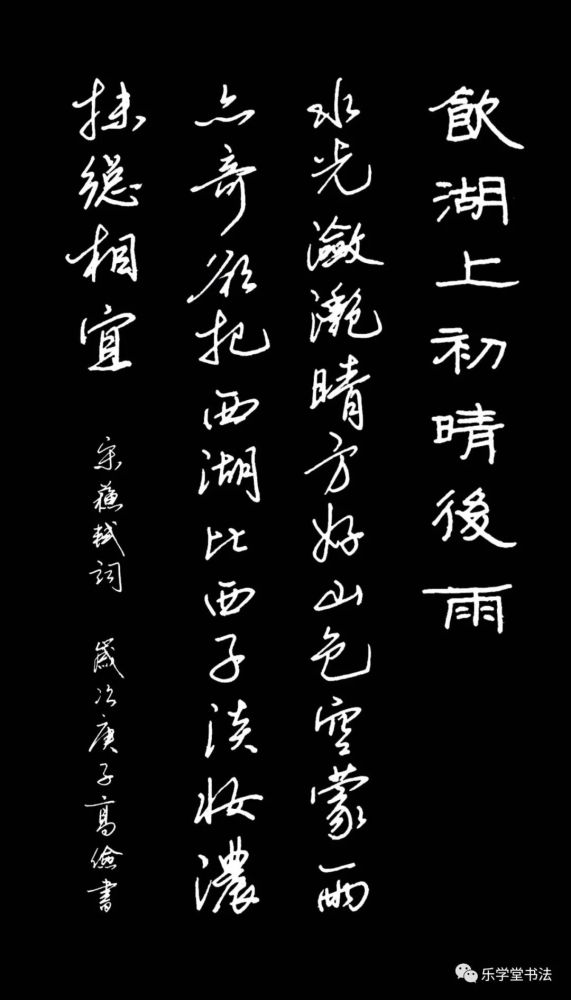 飲湖上初晴後雨
水光瀲灔晴方好山色空蒙雨
亦奇欲把西湖比西子淡妝濃
抹總相宜
宋蘇軾詞 歲次庚子高儉書
乐学堂书法